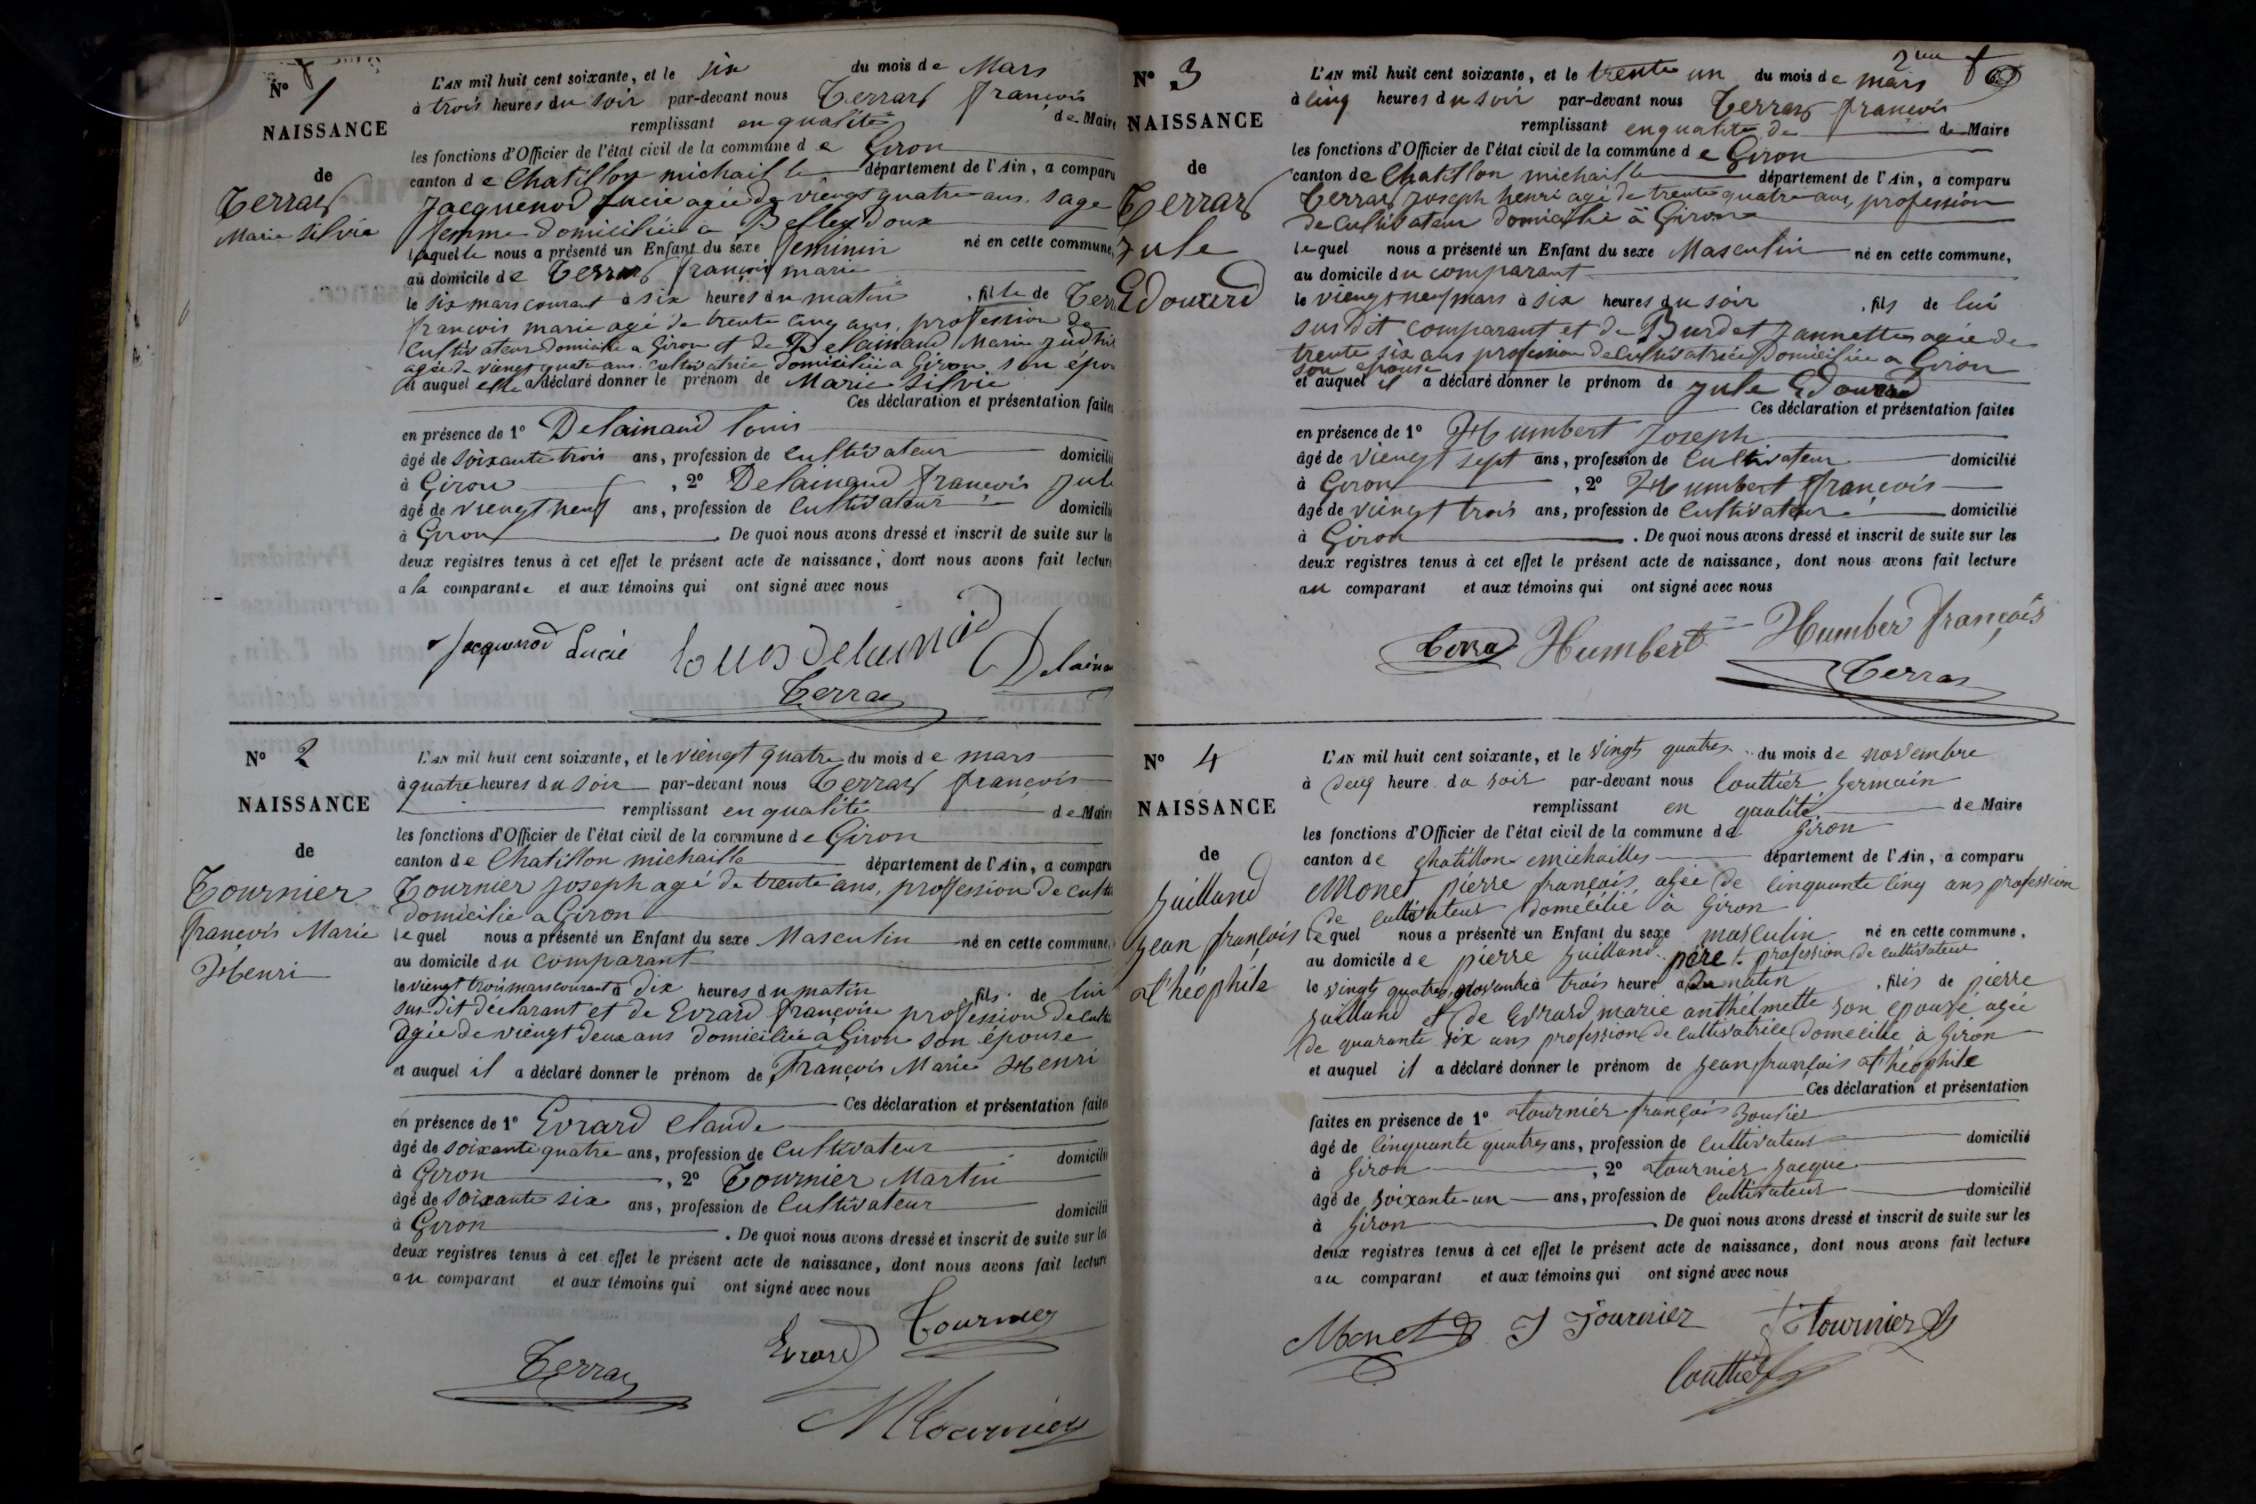 N° 1
NAISSANCE
de
Terraz
Marie Silvie
L'AN mil huit cent soixante, et le six du mois de Mars
à trois heures du soir par-devant nous Terraz françois
remplissant en qualité de Maire
les fonctions d'Officier de l'état civil de la commune de Giron
canton de Chatillon michaille département de l'Ain, a comparu
Jacquenod Lucie agée de viengt quatre ans. sage
femme domiciliée a Belleydoux
laquelle nous a présenté un Enfant du sexe feminin né en cette commune,
au domicile de Terraz françois marie
le six mars courant à six heures du matin, fille de Terr
françois marie agé de trente cinq ans, profession de
Cultivateur domicilié a Giron et de Delainaud Marie
agée de viengt quatre ans. cultivatrice domiciliée a Giron son épou
et auquel elle a déclaré donner le prénom de Marie Silvie
Ces déclaration et présentation faites
en présence de 1° Delainaud Louis
âgé de soixante trois ans, profession de Cultivateur domicilié
à Giron, 2° Delainaud françois Jule
âgé de viengt neuf ans, profession de Cultivateur domicilié
à Giron. De quoi nous avons dressé et inscrit de suite sur les
deux registres tenus à cet effet le présent acte de naissance, dont nous avons fait lecture
a la comparante et aux témoins qui ont signé avec nous
Jacquenod Lucie Delainaud
Terraz
N° 2
NAISSANCE
de
Tournier
françois Marie
Henri
L'AN mil huit cent soixante, et le viengt quatre du mois de mars
à quatre heures du soir par-devant nous Terraz françois
remplissant en qualité de Maire
les fonctions d'Officier de l'état civil de la commune de Giron
canton de Chatillon michaille département de l'Ain, a comparu
Tournier Joseph agé de trente ans, proffession de cult
domicilié a Giron
lequel nous a présenté un Enfant du sexe Masculin né en cette commune,
au domicile du comparant
le viengt trois mars courant à dix heures du matin, fils de lui
sus dit déclarant et de Evrard françoise profession de cult
agée de viengt deux ans domiciliée a Giron son épouse
et auquel il a déclaré donner le prénom de François Marie Henri
Ces déclaration et présentation faites
en présence de 1° Evrard Claude
âgé de soixante quatre ans, profession de Cultivateur domicilié
à Giron, 2° Tournier Martin
âgé de soixante six ans, profession de Cultivateur domicilié
à Giron. De quoi nous avons dressé et inscrit de suite sur les
deux registres tenus à cet effet le présent acte de naissance, dont nous avons fait lecture
au comparant et aux témoins qui ont signé avec nous
Tournier
Terraz Evrard
M Tournier
N° 3
NAISSANCE
de
Terraz
Jule
Edouard
L'AN mil huit cent soixante, et le trente un du mois de mars
à cinq heures du soir par-devant nous Terraz françois
remplissant en qualité de de Maire
les fonctions d'Officier de l'état civil de la commune de Giron
canton de Chatillon michaille département de l'Ain, a comparu
Terraz Joseph henri agé de trente quatre ans, profession
de Cultivateur domicilié à Giron
lequel nous a présenté un Enfant du sexe Masculin né en cette commune,
au domicile du comparant
le viengt neuf mars à six heures du soir, fils de lui
sus dit comparant et de Burdet Jannette agée de
trente six ans profession de Cultivatrice Domiciliée a Giron
son épouse
et auquel il a déclaré donner le prénom de Jule Edouard
Ces déclaration et présentation faites
en présence de 1° Humbert Joseph
âgé de viengt sept ans, profession de Cultivateur domicilié
à Giron, 2° Humbert françois
âgé de viengt trois ans, profession de Cultivateur domicilié
à Giron. De quoi nous avons dressé et inscrit de suite sur les
deux registres tenus à cet effet le présent acte de naissance, dont nous avons fait lecture
au comparant et aux témoins qui ont signé avec nous
Terraz Humbert Humber françois
Terraz
N° 4
NAISSANCE
de
Juilland
Jean françois
théophile
L'AN mil huit cent soixante, et le vingt quatres du mois de novembre
à deux heure du soir par-devant nous Couttier Germain
remplissant en qualité de Maire
les fonctions d'Officier de l'état civil de la commune de Giron
canton de chatillon michailles département de l'Ain, a comparu
Monet pierre françois agée de cinquante cinq ans profession
de cultivateur domécilié à Giron
lequel nous a présenté un Enfant du sexe masculin né en cette commune,
au domicile de pierre Juilland père profession de cultivateur
le vingt quatres novembre à trois heure du matin, fils de pierre
Juilland et de Evrard marie anthelmette son épouse agée
de quarante six ans profession de cultivatrice domécilié à Giron
et auquel il a déclaré donner le prénom de Jean françois théophile
Ces déclaration et présentation
faites en présence de 1° tournier françois
âgé de cinquante quatres ans, profession de cultivateur domicilié
à Giron, 2° tournier Jacque
âgé de soixante-un ans, profession de cultivateur domicilié
à Giron. De quoi nous avons dressé et inscrit de suite sur les
deux registres tenus à cet effet le présent acte de naissance, dont nous avons fait lecture
au comparant et aux témoins qui ont signé avec nous
Monet J Tournier Tournier
Couttier